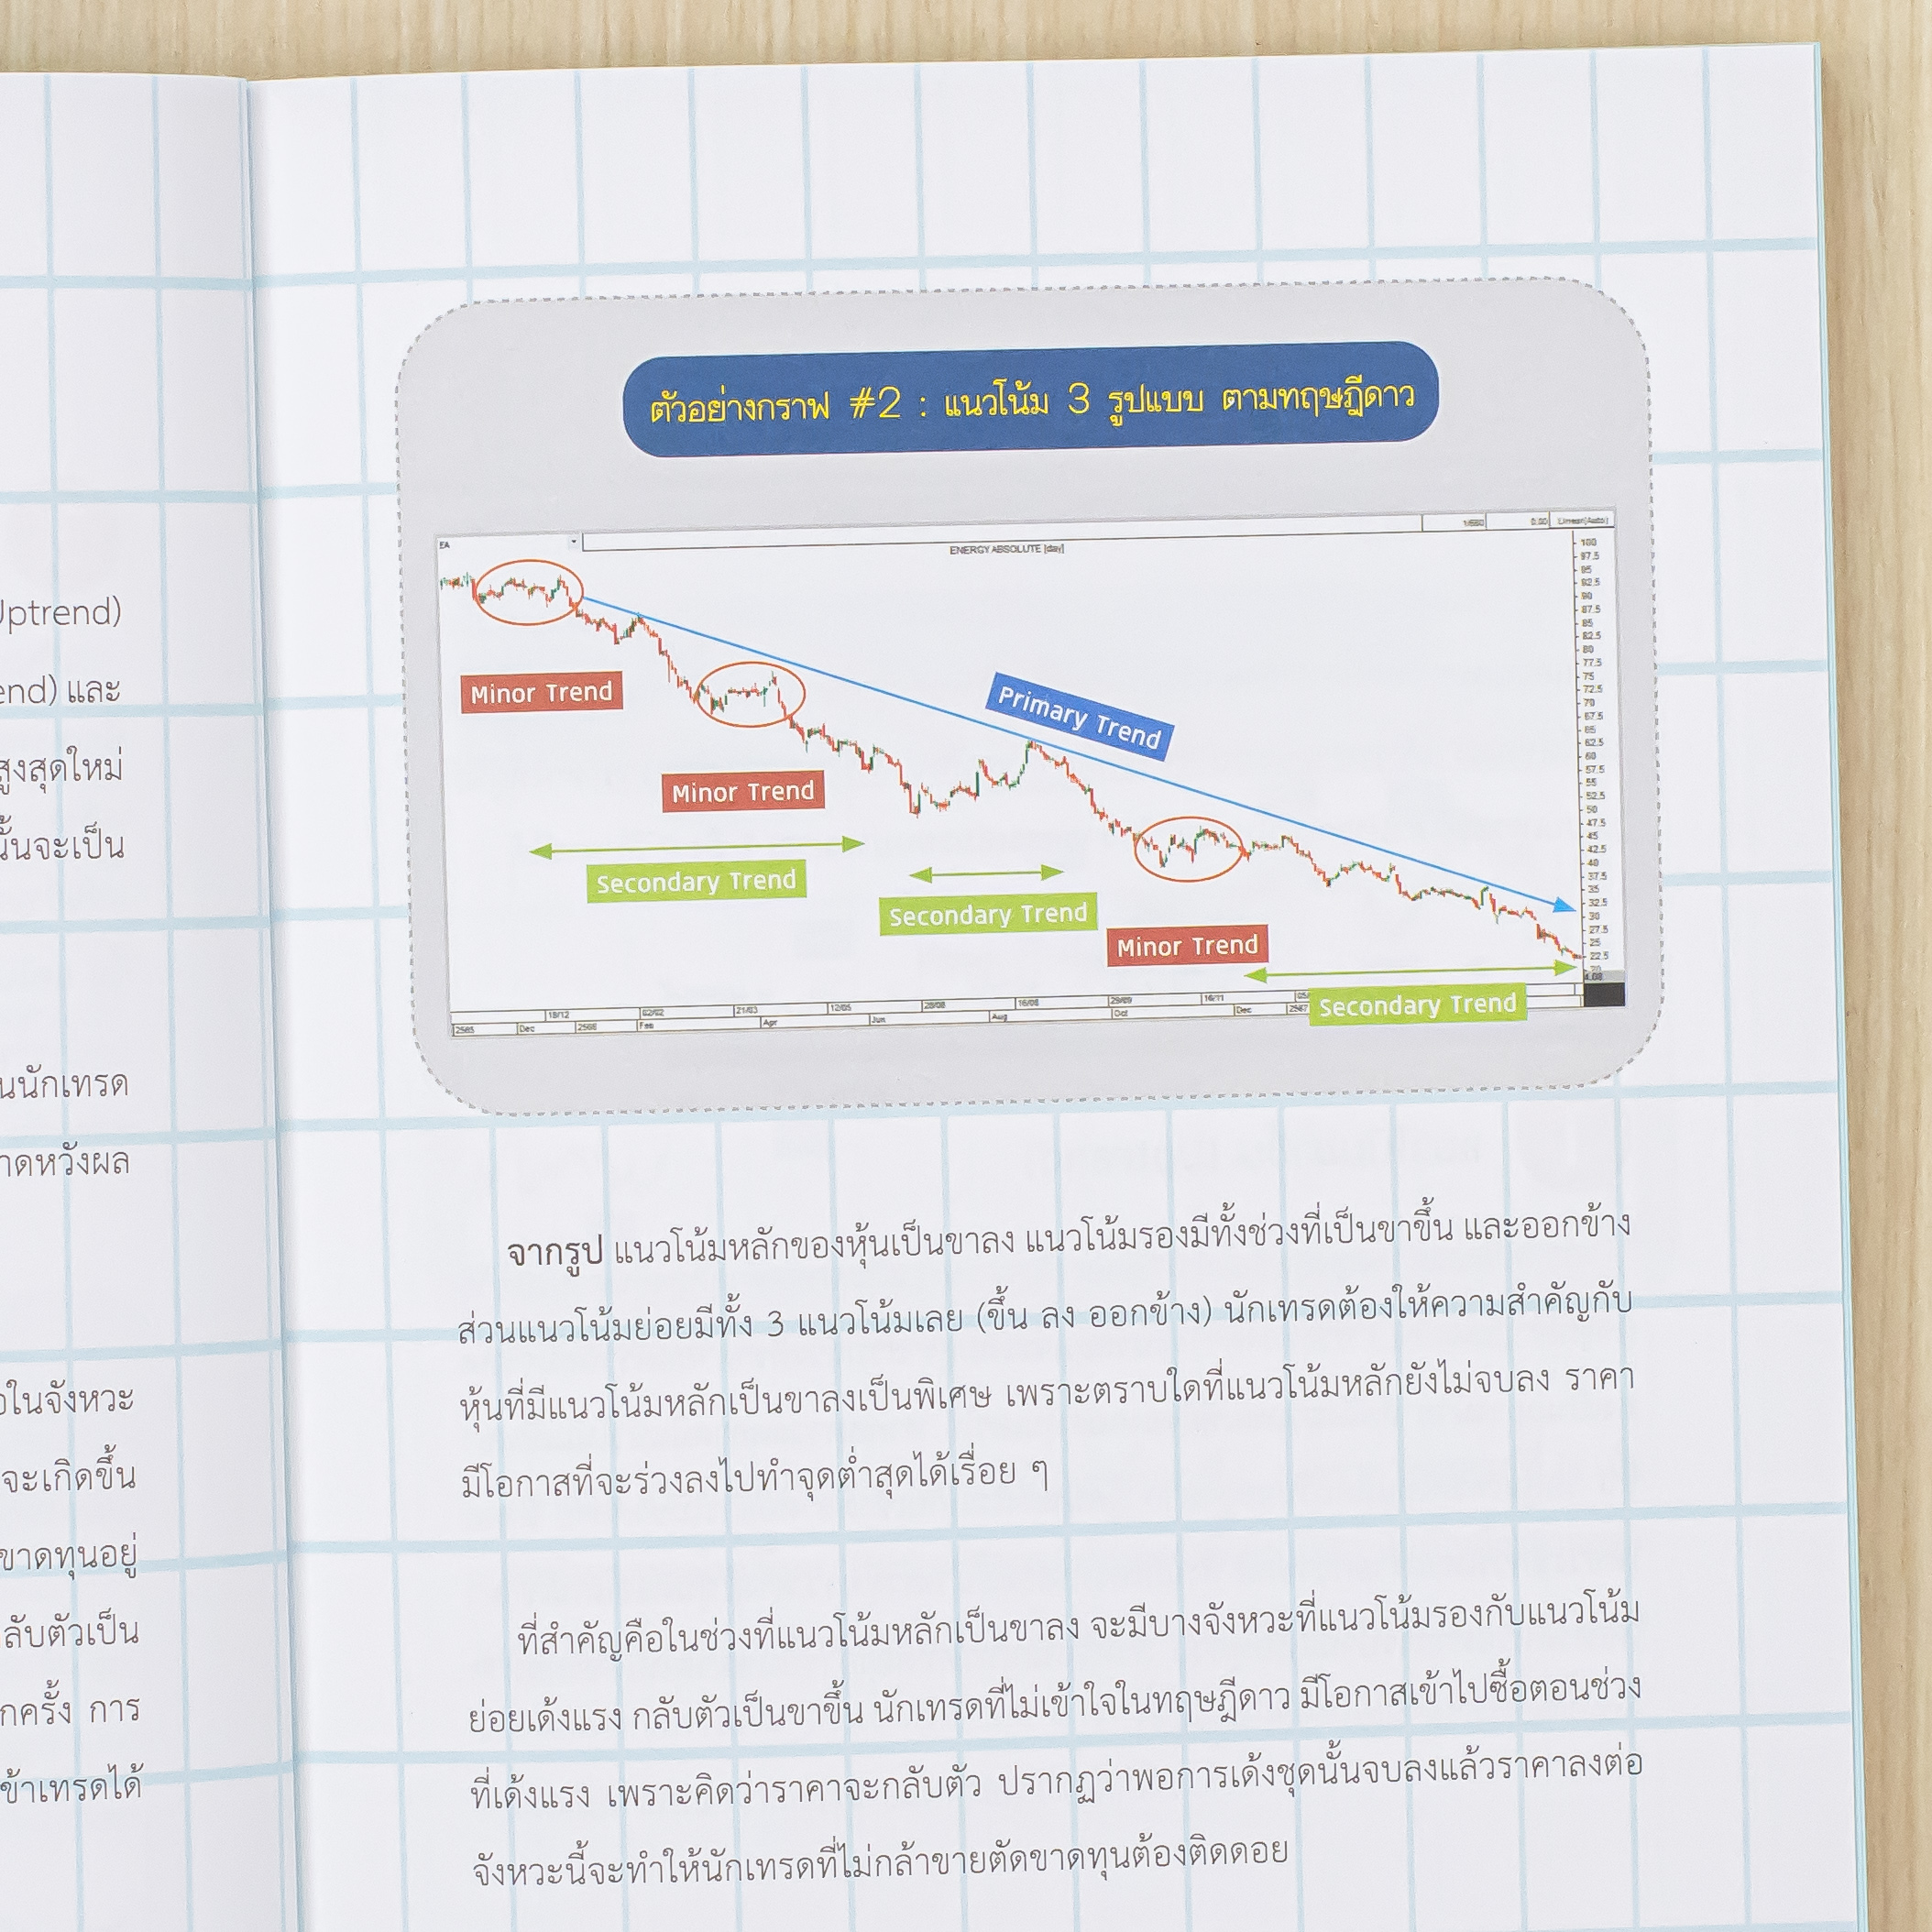 Uptrend)
และ
สูงสุดใหม่
นั้นจะเป็น
นักเทรด
หวังผล
ในจังหวะ
จะเกิดขึ้น
ขาดทุนอยู่
ลับตัวเป็น
กครั้ง การ
ข้าเทรดได้
ตัวอย่างกราฟ #2 : แนวโน้ม 3 รูปแบบ ตามทฤษฎีดาว
EA
ENERGY ABSOLUTE [day]
1/680 0.00 Linear(Auto)
100
97.5
95
92.5
90
87.5
85
82.5
80
77.5
75
72.5
70
67.5
65
62.5
60
57.5
55
52.5
50
47.5
45
42.5
40
37.5
35
32.5
30
27.5
25
22.5
Minor Trend
Primary Trend
Minor Trend
Secondary Trend
Secondary Trend
Minor Trend
Secondary Trend
02/02 21/03 12/05 16/08 29/09 16/11
2565 Dec 2566 Feb Apr Jun Aug Oct Dec 2567
จากรูป แนวโน้มหลักของหุ้นเป็นขาลง แนวโน้มรองมีทั้งช่วงที่เป็นขาขึ้น และออกข้าง
ส่วนแนวโน้มย่อยมีทั้ง 3 แนวโน้มเลย (ขึ้น ลง ออกข้าง) นักเทรดต้องให้ความสำคัญกับ
หุ้นที่มีแนวโน้มหลักเป็นขาลงเป็นพิเศษ เพราะตราบใดที่แนวโน้มหลักยังไม่จบลง ราคา
มีโอกาสที่จะร่วงลงไปทำจุดต่ำสุดได้เรื่อย ๆ
ที่สำคัญคือในช่วงที่แนวโน้มหลักเป็นขาลง จะมีบางจังหวะที่แนวโน้มรองกับแนวโน้ม
ย่อยเด้งแรง กลับตัวเป็นขาขึ้น นักเทรดที่ไม่เข้าใจในทฤษฎีดาว มีโอกาสเข้าไปซื้อตอนช่วง
ที่เด้งแรง เพราะคิดว่าราคาจะกลับตัว ปรากฏว่าพอการเด้งชุดนั้นจบลงแล้วราคาลงต่อ
จังหวะนี้จะทำให้นักเทรดที่ไม่กล้าขายตัดขาดทุนต้องติดดอย